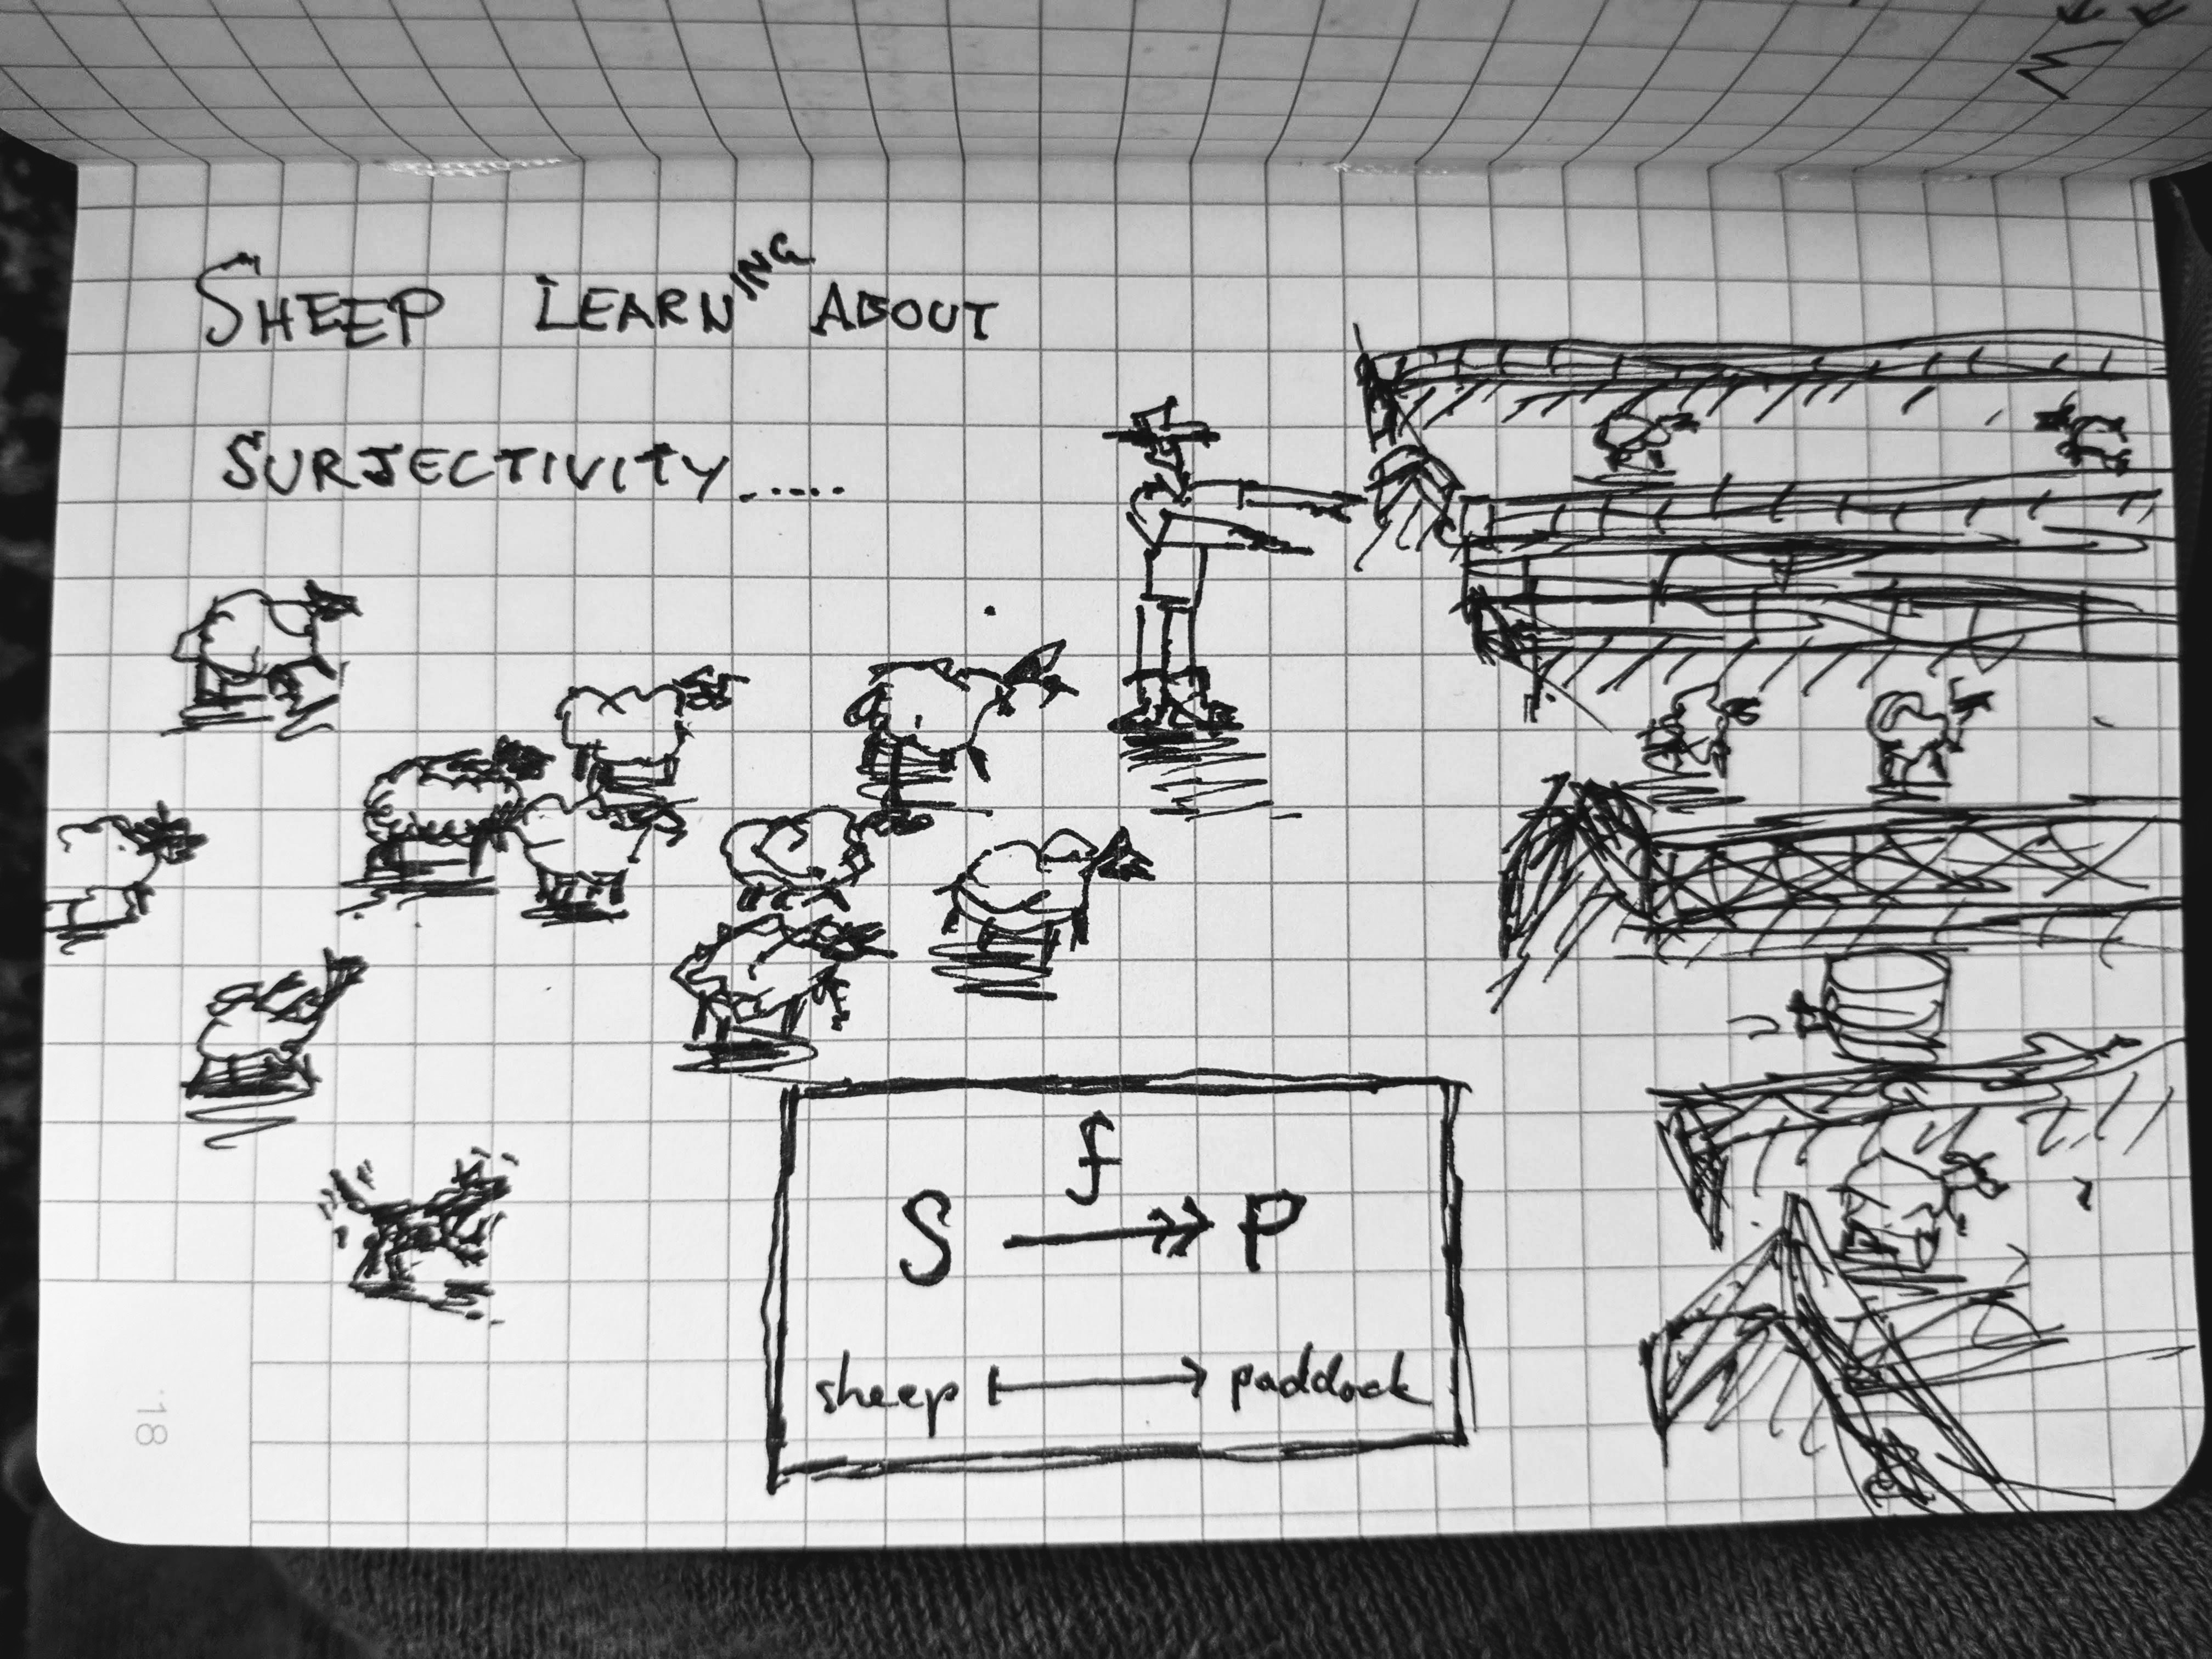 SHEEP LEARNING ABOUT
SURJECTIVITY.....
f
S ↠ P
sheep ↦ paddock
18